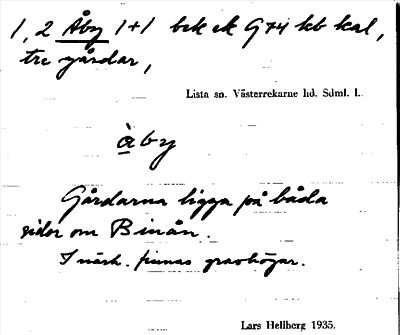 1, 2 Åby 1+1 bek ek G74 kb kal,
tre gårdar,
Lista sn. Västerrekarne hd. Sdml. l.
åby
Gårdarna ligga på båda
sidor om Binån.
I närh. finnas gravhögar.
Lars Hellberg 1935.